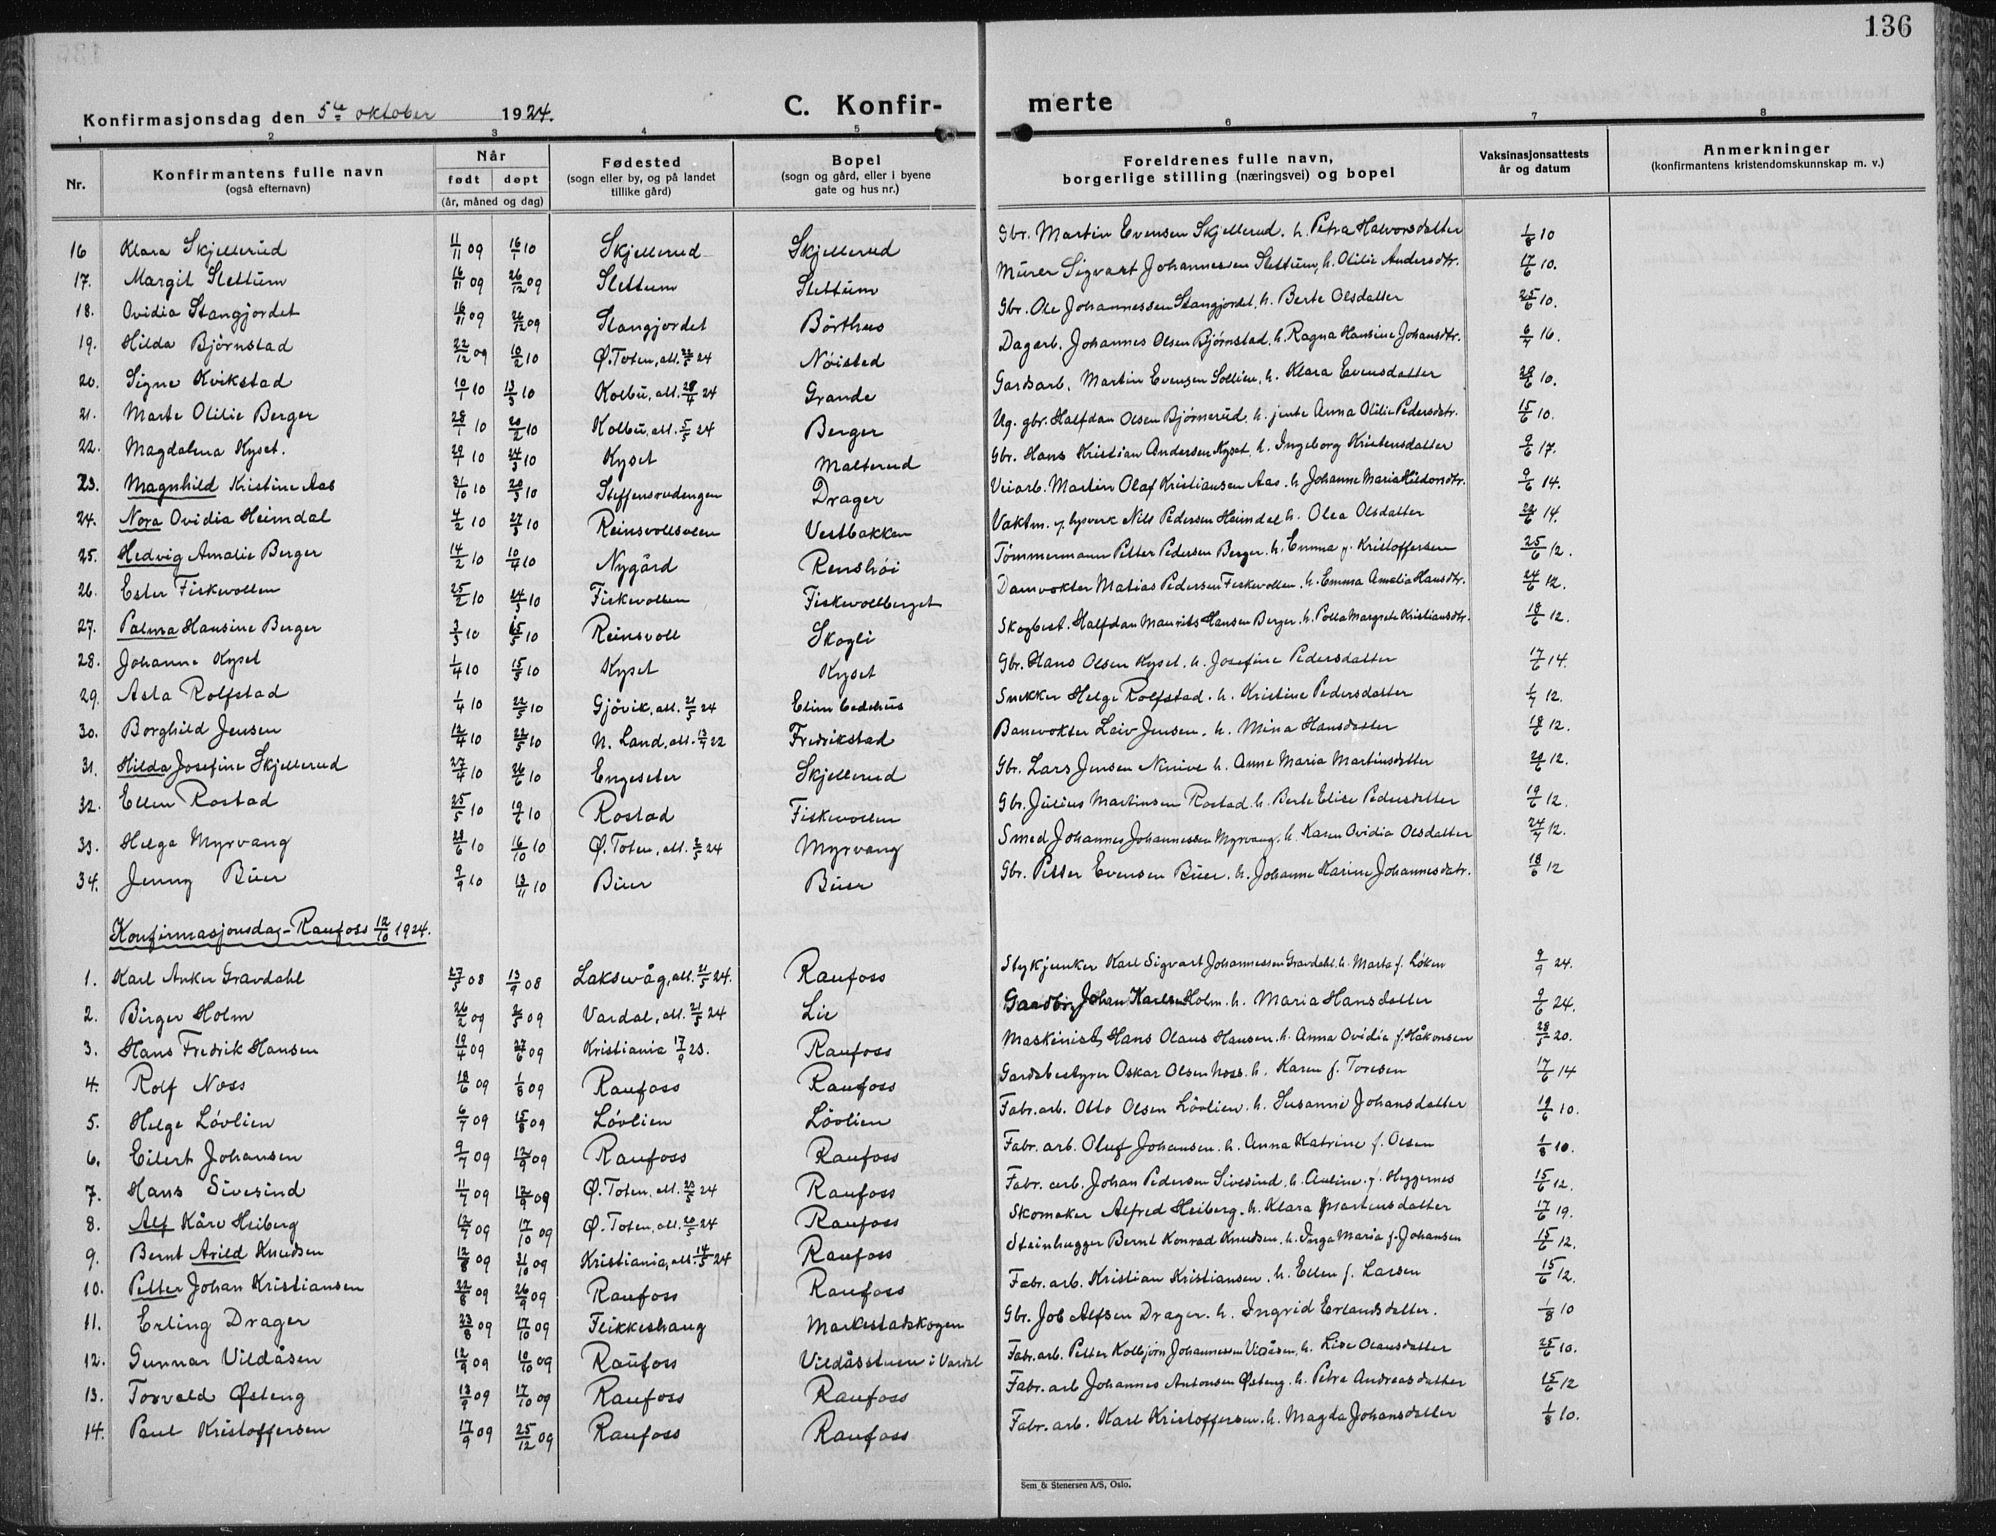 136
Konfirmasjonsdag den 5te oktober 1924.
C. Konfirmerte
1 2 3 4 5 6 7 8
Nr. Konfirmantens fulle navn (også efternavn) Når født døpt (år, måned og dag) Fødested (sogn eller by, og på landet tillike gård) Bopel (sogn og gård, eller i byene gate og hus nr.) Foreldrenes fulle navn, borgerlige stilling (næringsvei) og bopel Vaksinasjonsattests år og datum Anmerkninger (konfirmantens kristendomskunnskap m. v.)
16 Klara Skjellerud 11/11 09 16/1 10 Skjellerud Skjellerud Gbr. Martin Evensen Skjellerud. h. Petra Halvorsdatter 1/8 10
17. Margit Slettum 16/11 09 26/12 09 Slettum Slettum Murer Sigvart Johannessen Slettum, h. Otilie Andersdtr. 17/6 10.
18. Ovidia Stangjordet 16/11 09 26/12 09 Stangjordet Börthus Gbr. Ole Johannessen Stangjordet, h. Berte Olsdatter 25/6 10.
19. Hilda Bjørnstad 22/12 09 10/2 10 Ø. Toten, att. 22/5 24 Nøisted Dagarb. Johannes Olsen Bjørnstad, h. Ragna Hansine Johansdtr. 16.
20. Signe Kvikstad 10/1 10 13/3 10 Kolbu, att. 28/4 24 Grande Gardsarb. Martin Evensen Sollien, h. Klara Evensdatter 28/6 10.
21. Marte Otilie Berger 28/1 10 20/2 10 Kolbu, att. 5/5 24 Berger Ug. gbr. Halfdan Olsen Bjørnerud, h. jente Anna Otilie Pedersdtr. 15/6 10.
22. Magdalena Kyset. 29/1 10 24/3 10 Kyset Malterud Gbr. Hans Kristian Andersen Kyset, h. Ingeborg Kristensdatter 9/6 17.
23. Magnhild Kristine Aas 31/10 10 20/3 10 Steffensrudengen Drager Veiarb. Martin Olaf Kristiansen Aas. h Johanne Maria Hildorsdtr. 9/6 14.
24. Nora Ovidia Heimdal 4/2 10 27/3 10 Reinsvollsveen Vestbakken Vaktm. v. lysverk Nils Pedersen Heimdal h. Olea Olsdatter 22/6 14.
25. Hedvig Amalie Berger 14/2 10 10/4 10 Nygård Renshøi Tømmermann Petter Pedersen Berger. h. Emma f. Kristoffersen 25/6 12.
26. Ester Fiskevollen 25/2 10 24/3 10 Fiskevollen Fiskevollberget Damvokter Matias Pedersen Fiskevollen. h. Emma Amalia Hansdtr. 24/6 12.
27. Palma Hansine Berger 3/3 10 15/5 10 Reinsvoll Skogli Skogbest. Halfdan Maurits Hansen Berger. h. Polla Margrete Kristiansdtr. 18/6 12.
28. Johanne Kyset 1/4 10 15/5 10 Kyset Kyset Gbr. Hans Olsen Kyset. h. Josefine Pedersdatter 17/6 14.
29. Asta Rolfstad 1/4 10 22/5 10 Gjøvik, att. 21/5 24 Elim bedehus Snekker Helge Rolfstad. h. Kristine Pedersdatter 1/7 12.
30. Borghild Jensen 12/4 10 22/5 10 N. Land, att. 13/7 22 Fredrikstad Banevokter Leiv Jensen. h. Mina Hansdatter 18/6 12.
31. Hilda Josefine Skjellerud 27/4 10 26/6 10 Engeseter Skjellerud Gbr. Lars Jensen Ninive h. Anne Maria Martinsdatter 22/6 12.
32. Ellen Rostad 25/5 10 10 Rostad Fiskevollen Gbr. Julius Martinsen Rostad. h. Berte Elise Pedersdatter 19/6 12.
33. Helga Myrvang 28/6 10 16/10 10 Ø. Toten, att. 24 Myrvang Smed Johannes Johannessen Myrvang. h. Karen Ovidia Olsdatter 24/7 12.
34. Jenny Buer 9/9 10 13/11 10 Buer Buer Gbr. Petter Evensen Buer. h. Johanne Karine Johannesdatr. 18/6 12
Konfirmasjonsdag - Raufoss 12/10 1924.
1. Karl Anker Gravdahl 27/5 08 13/9 08 Laksevåg, att. 21/5 24. Raufoss Stykjunker Karl Sigvart Johannessen Gravdahl. h. Marta f. Løken 9/9 24.
2. Birger Holm 26/2 09 09 Vardal, att. 21/5 24 Lie Gaardbr. Johan Karlsen Holm. h. Maria Hansdatter 9/6 24.
3. Hans Fredrik Hansen 19/4 09 27/6 09 Kristiania 17/9 23. Raufoss Maskinist Hans Olaus Hansen. h. Anna Ovidia f. Håkonsen 28/5 20.
4. Rolf Noss 18/6 09 1/8 09 Raufoss Raufoss Gardsbestyrer Oskar Olsen Noss. h. Karen f. Toresen 17/6 14
5. Helge Løvlien 6/7 09 15/8 09 Løvlien Løvlien Fabr. arb. Otto Olsen Løvlien. h. Susanne Johansdatter 19/6 10.
6. Eilert Johansen 9/7 09 12/9 09 Raufoss Raufoss Fabr. arb. Oluf Johansen. h. Anna Katrine f. Olsen 1/8 10.
7. Hans Sivesind 11/7 09 12/9 09 Ø. Toten, att. 23/5 24 Raufoss Fabr. arb. Johan Pedersen Sivesind. h. Auline f. Heggernes 15/6 12.
8. Alf Kåre Heiberg 12/7 09 17/10 09 Ø. Toten, att. 20/5 24 Raufoss Skomaker Alfred Heiberg. h. Klara Martinsdatter 17/6 19.
9. Bernt Arild Knudsen 12/8 09 31/10 09 Kristiania, att. 14/5 24 Raufoss Steinhugger Bernt Konrad Knudsen. h. Inga Maria f. Johansen 15/6 12.
10. Petter Johan Kristiansen 22/8 09 26/9 09 Raufoss Raufoss Fabr. arb. Kristian Kristiansen. h. Ellen f. Larsen 15/6 12.
11. Erling Drager 23/8 09 17/10 09 Feikkeshaug Markestadskogen Gbr. Job Alfsen Drager. h. Ingrid Erlandsdatter. 1/8 10
12. Gunnar Vildåsen 12/9 09 10/10 09 Raufoss Vildåsstuen i Vardal Fabr. arb. Petter Kolbjørn Johannessen Vildåsen, h. Lise Olausdatter 25/6 10.
13. Torvald Østeng 13/9 09 17/10 09 Raufoss Raufoss Fabr. arb Johannes Antonsen Østeng. h. Petra Andreasdatter 15/6 12
14. Paul Kristoffersen 17/9 09 25/12 09 Raufoss Raufoss Fabr. arb. Karl Kristoffersen. h. Magda Johansdatter 1/8 10.
Sem & Stenersen A/S, Oslo.